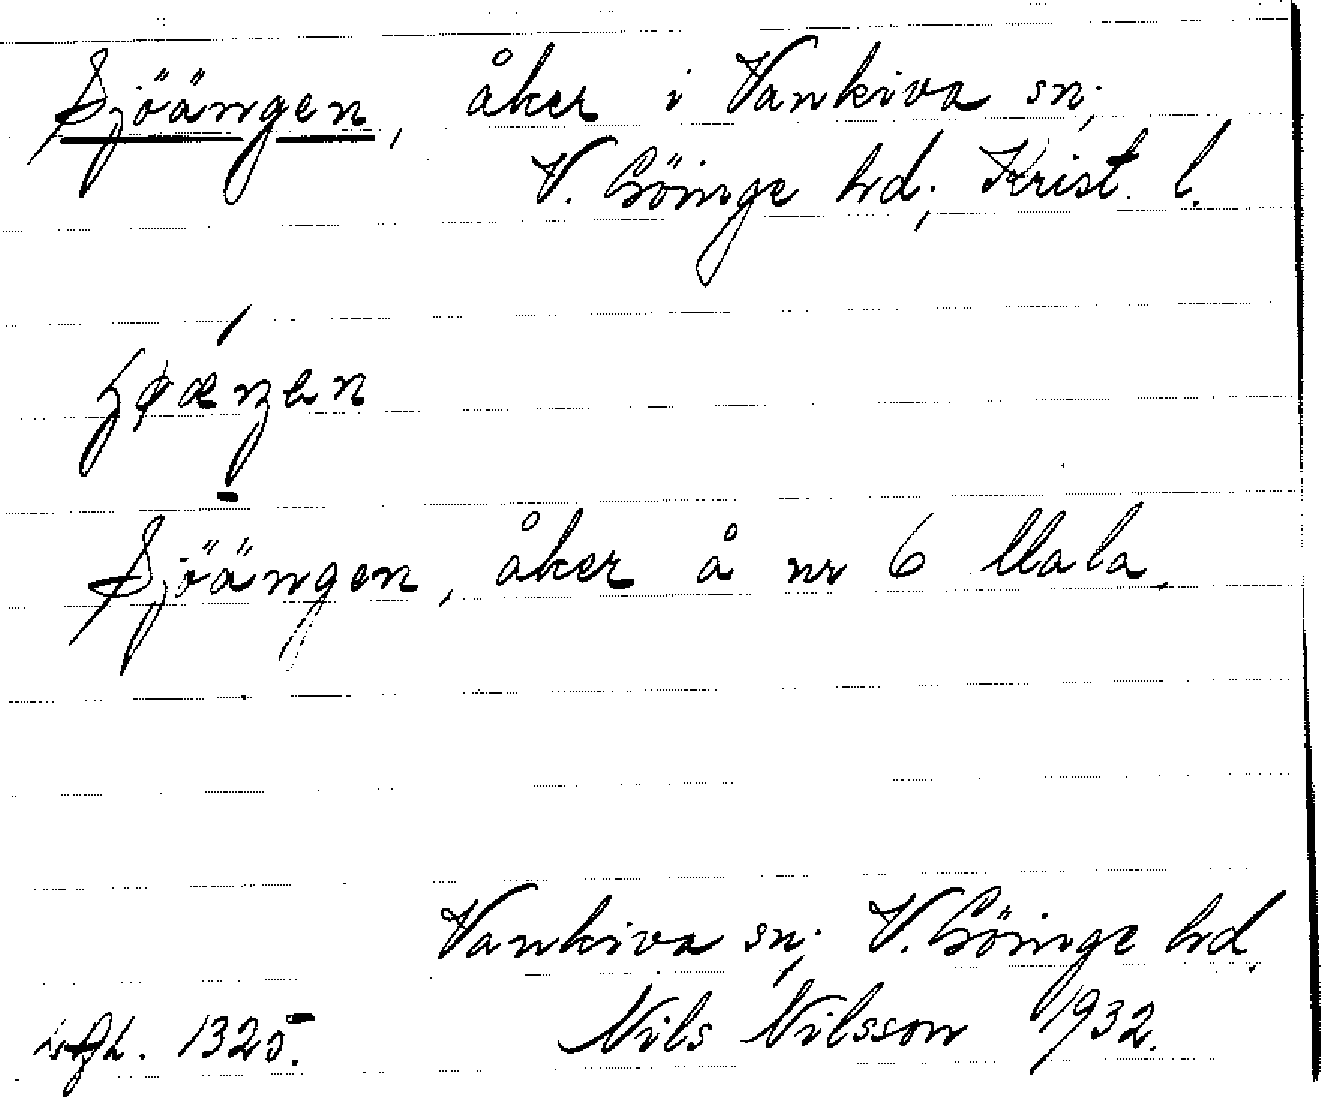 Sjöängen, åker i Vankiva sn;
V. Göinge hd; Krist. l.
Sjöängen, åker å nr 6 Mala.
Vankiva sn; V. Göinge hd.
1325. Nils Nilsson 1932.